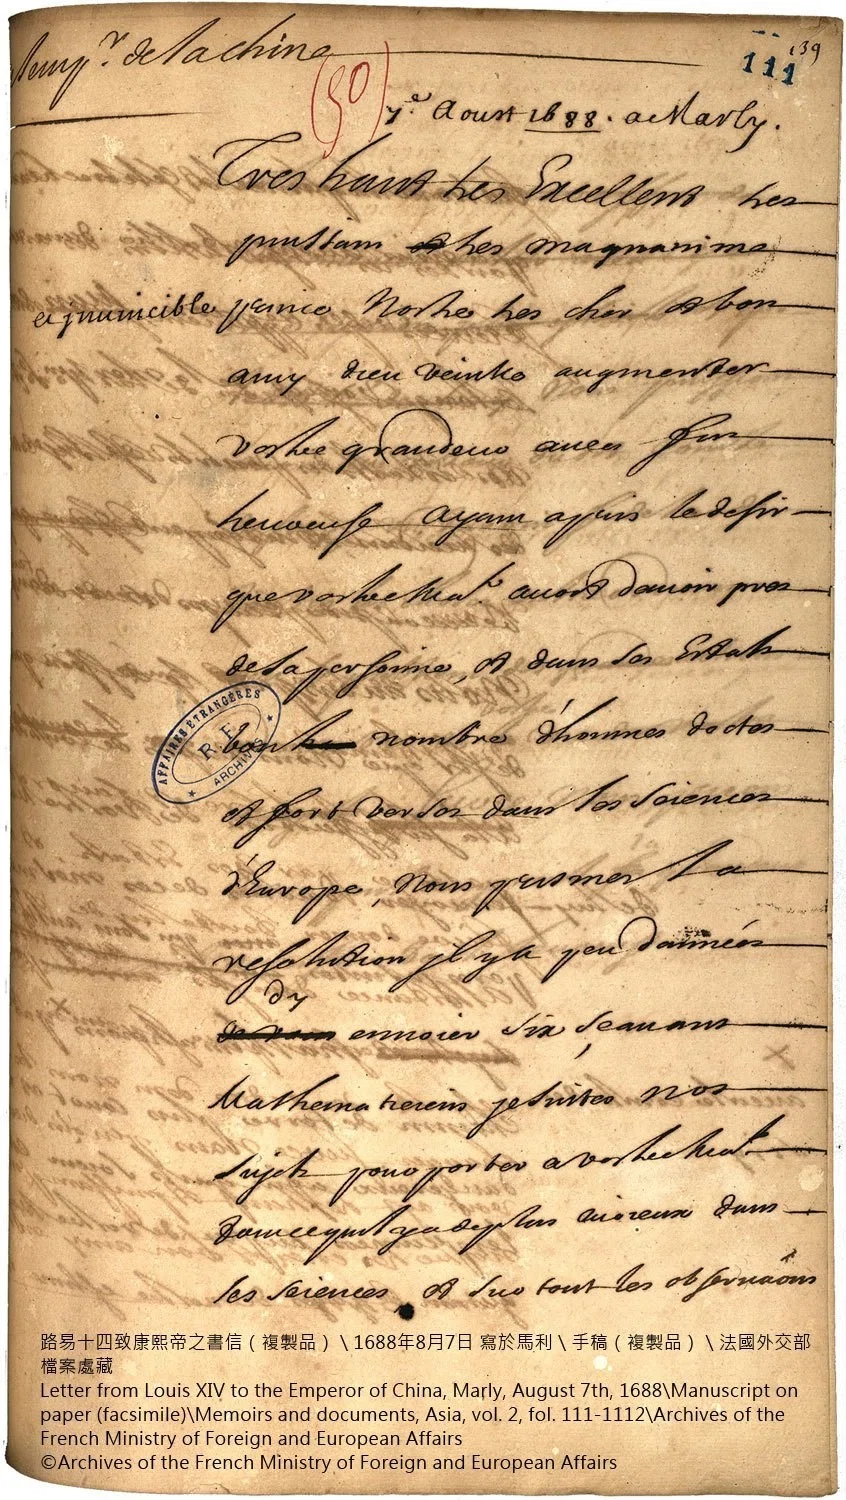 Emp.r de la chine
(50)
111
139
7.e Aoust 1688. a Marly.
Tres haut tres Excellent tres
puissant et tres magnanime
et jnuincible prince Nostre tres cher et bon
amy dieu veiulle augmenter
vostre grandeur auec fin
heureuse Ayant apris le desir
que vostre Ma.té auoit dauoir pres
de sa personne, et dans ses Estats
bon nombre d'hommes doctes
et fort verses dans les sciences
d'Europe, Nous prismes La
resolution jl y a peu dannées
dy
enuoier six sçauans
Mathematiciens jesuites nos
sujets pour porter a vostre Ma.té
tout ce quil y a de plus curieux dans
les sciences, et sur tout les obseruaôns
AFFAIRES ÉTRANGÈRES
R.F.
ARCHIVES
路易十四致康熙帝之書信（複製品）\ 1688年8月7日 寫於馬利 \ 手稿（複製品）\ 法國外交部
檔案處藏
Letter from Louis XIV to the Emperor of China, Marly, August 7th, 1688\Manuscript on
paper (facsimile)\Memoirs and documents, Asia, vol. 2, fol. 111-1112\Archives of the
French Ministry of Foreign and European Affairs
©Archives of the French Ministry of Foreign and European Affairs